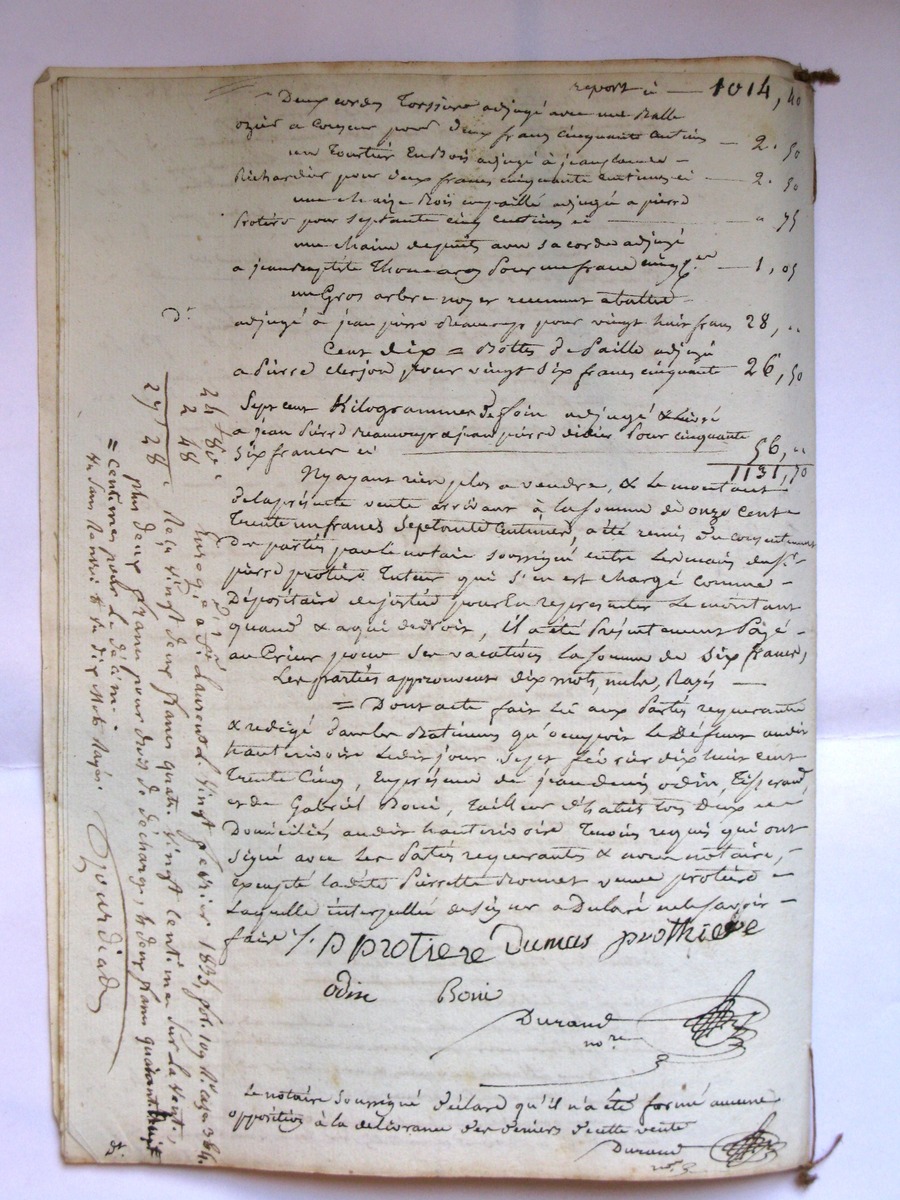 report ci — 1014, 40
Deux cordes Torsière adjugé avec une Malle
ozier a pour deux francs cinquante centimes — 2. 50
un Tourtier En Bois adjugé à jean
Richardier pour deux francs cinquante centimes ci — 2. 50
une chaize Bois empaillé adjugée a pierre
Protière pour septante cinq centimes ci — " 75
une chaine de puits avec sa corde adjugé
a jean Baptiste pour un franc cinq c.es — 1, 05
un Gros arbre noyer recemment abattu
adjugé à jean pierre pour vingt huit francs 28, "
Cent dix = Bottes de Paille adjugé
a Pierre clerjon pour vingt six francs cinquante 26, 50
Sept cent Kilogrammes de foin adjugé & livré
a jean Pierre & jean pierre didier pour cinquante
six francs ci — 56, "
1131, 70
N'y ayant rien plus a vendre, & le montant
de la présente vente arrivant à la somme de onze cent
Trente un francs Septante Centimes, a été remis du consentement
des parties par le notaire soussigné entre les mains du S.r
pierre protière Tuteur qui s'en est chargé comme
Dépositaire de justice pour en représenter le montant
quand & a qui de droit, il a été Présentement Payé
au Crieur pour ses vacations la somme de six francs,
Les parties approuvent dix mots, nuls, Rayés —
= Dont acte fait Lu aux Parties requerantes
& redigé dans les Batimens qu'occupoit le Défunt audit
hauterivoire ledit jour Sept février dix huit cent
Trente Cinq, En présence de jean denis odin, Tisserand,
et de Gabriel Boni, Tailleur d'habits tous deux
Domiciliés audit hauterivoire Temoins requis qui ont
signé avec les Parties requerantes & nous notaire,
excepté ladite Pierrette veuve protière
Laquelle interpellée de signer a Déclaré ne le savoir
faire /. P protiere Dumas prothiere
odin Boni
Durand
no.re
Le notaire soussigné déclare qu'il n'a été formé aucune
opposition à la délivrance des deniers de cette vente
Durand
n.re
D.t
24 + 80 c
2 48
27 28
Enregistré à S.t Laurent le Vingt février 1835, fol. 109 R.o cases 3 & 4.
Reçu vingt deux francs quatre vingt centimes sur la vente,
plus deux francs pour droit de décharge, & deux francs quarante huit
= Centimes pour le décime.
dix Mots Rayés.
Gourdiad
D.t